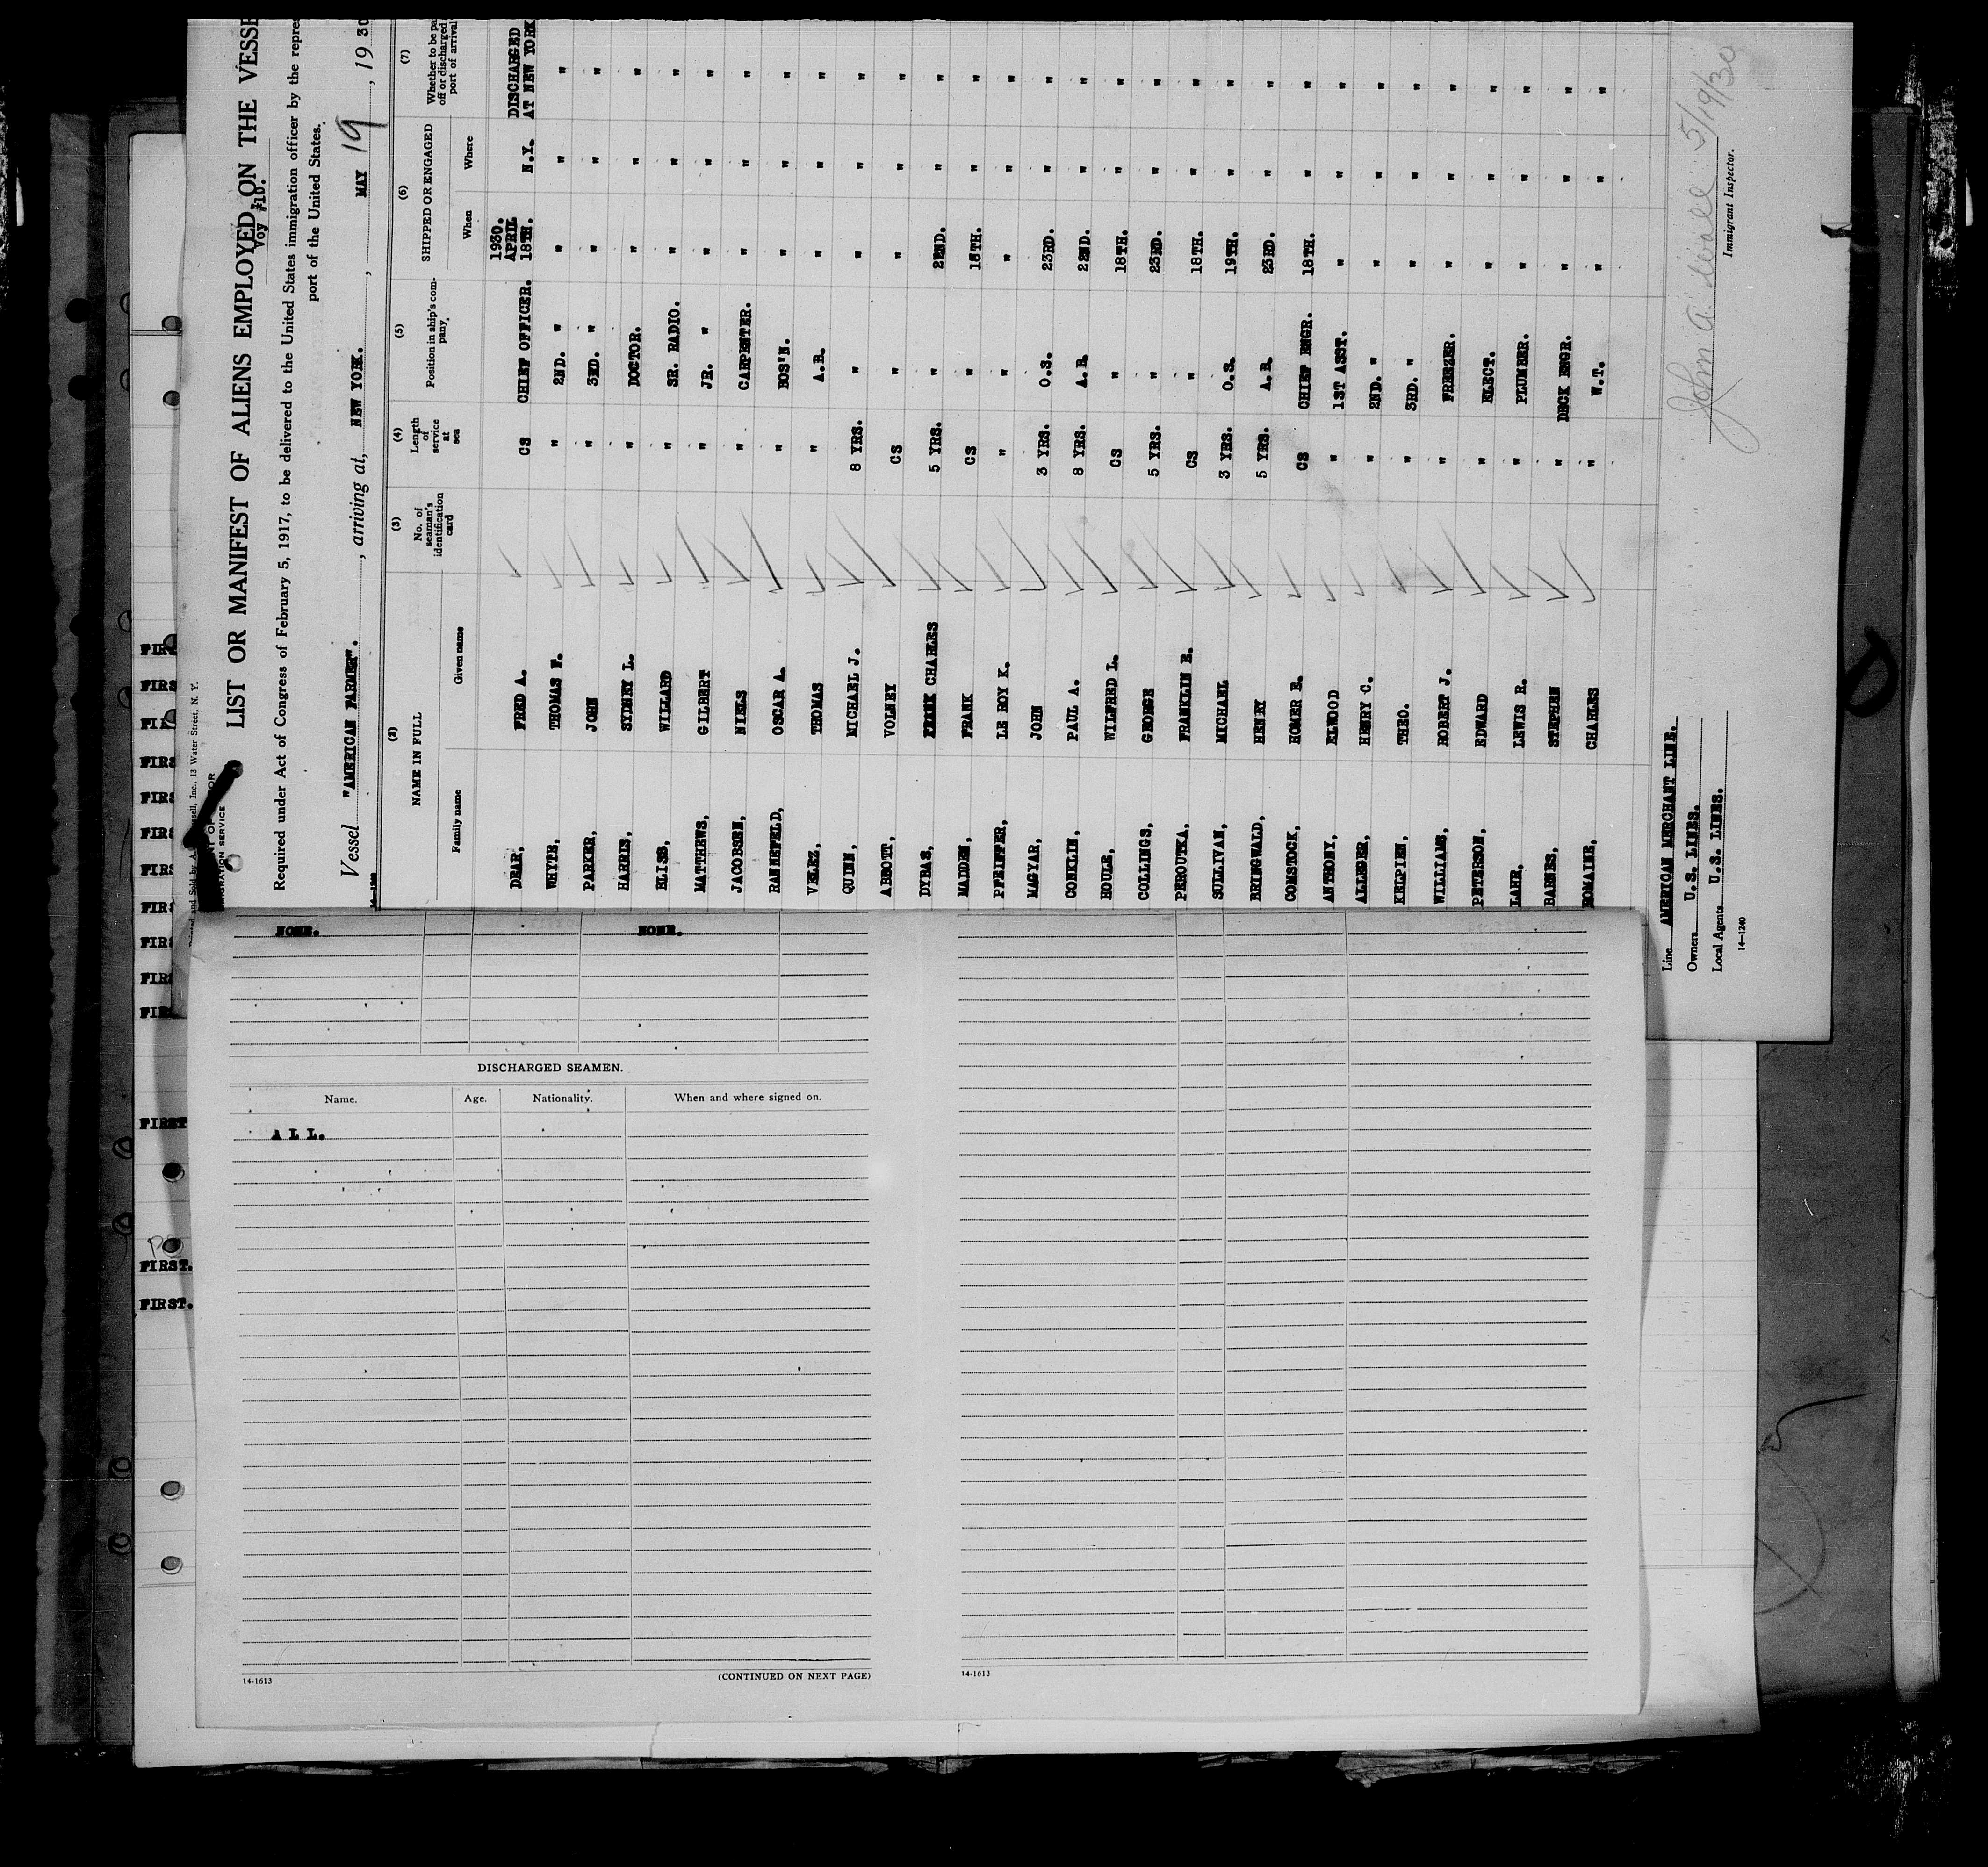 LIST OR MANIFEST OF ALIENS EMPLOYED ON THE VESSE
Voy #10.
Required under Act of Congress of February 5, 1917, to be delivered to the United States immigration officer by the repre
port of the United States.
Vessel "AMERICAN FARMER". , arriving at, NEW YORK. , MAY 19 , 1930
(2) (3) (4) (5) (6) (7)
NAME IN FULL No. of seaman's identification card Length of service at sea Position in ship's company. SHIPPED OR ENGAGED Whether to be pa off or discharged port of arrival
Family name Given name When Where
DEAR, FRED A. CS CHIEF OFFICER. 1930. APRIL 18TH. N.Y. DISCHARGED AT NEW YORK
WHYTE, THOMAS F. " 2ND. " " " "
PARKER, JOHN " 3RD. " " " "
HARRIS, SYDNEY L. " DOCTOR. " " "
BLISS, WILLARD " SR. RADIO. " " "
MATTHEWS, GILBERT " JR. " " " "
JACOBSEN, NIELS " CARPENTER. " " "
RANNEFELD, OSCAR A. " BOS'N. " " "
VELEZ, THOMAS " A.B. " " "
QUINN, MICHAEL J. 8 YRS. " " " "
ABBOTT, VOLNEY CS " " " "
DYBAS, FRANK CHARLES 5 YRS. " 22ND. " "
MADDEN, FRANK CS " 18TH. " "
PFEIFFER, LE ROY K. " " " " "
MAGYAR, JOHN 3 YRS. O.S. 23RD. " "
CONKLIN, PAUL A. 8 YRS. A.B. 22ND. " "
HOULE, WILFRED L. CS " 18TH. " "
COLLINGS, GEORGE 5 YRS. " 23RD. " "
PEROUTKA, FRANKLIN E. CS " 18TH. " "
SULLIVAN, MICHAEL 3 YRS. O.S. 19TH. " "
BRINGWALD, HENRY 5 YRS. A.B. 23RD. " "
COMSTOCK, HOMER E. CS CHIEF ENGR. 18TH. " "
ANTHONY, ELWOOD " 1ST ASST. " " "
ALLEGER, HENRY C. " 2ND. " " " "
KELPIEN, THEO. " 3RD. " " " "
WILLIAMS, ROBERT J. " FREEZER. " " "
PETERSON, EDWARD " ELECT. " " "
LAHR, LEWIS R. " PLUMBER. " " "
BARNES, STEPHEN " DECK ENGR. " " "
ROMAINE, CHARLES " W.T. " " "
Line AMERICAN MERCHANT LINE.
Owners U.S. LINES.
Local Agents U.S. LINES.
14-1240
5/19/30
Immigrant Inspector.
NONE. NONE.
DISCHARGED SEAMEN.
Name. Age. Nationality. When and where signed on.
A L L.
14-1613 (CONTINUED ON NEXT PAGE)
14-1613
FIRST
FIRST.
FIRST.